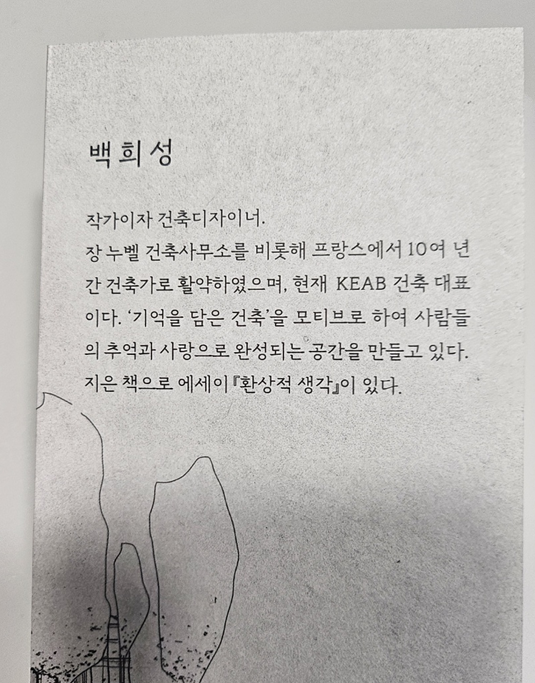 백희성
작가이자 건축디자이너.
장 누벨 건축사무소를 비롯해 프랑스에서 10여 년
간 건축가로 활약하였으며, 현재 KEAB 건축 대표
이다. ‘기억을 담은 건축’을 모티브로 하여 사람들
의 추억과 사랑으로 완성되는 공간을 만들고 있다.
지은 책으로 에세이 『환상적 생각』이 있다.